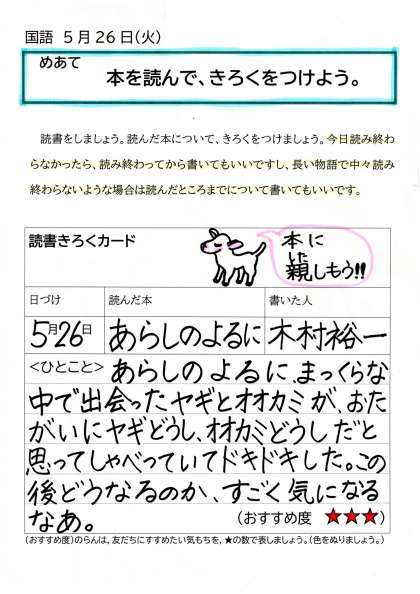 国語 5月26日(火)
めあて
本を読んで、きろくをつけよう。
読書をしましょう。読んだ本について、きろくをつけましょう。今日読み終わ
らなかったら、読み終わってから書いてもいいですし、長い物語で中々読み
終わらないような場合は読んだところまでについて書いてもいいです。
読書きろくカード
本に
いた
親しもう!!
日づけ 読んだ本 書いた人
5月26日 あらしのよるに 木村裕一
<ひとこと> あらしのよるに、まっくらな
中で出会ったヤギとオオカミが、おた
がいにヤギどうし、オオカミどうしだと
思ってしゃべっていてドキドキした。この
後どうなるのか、すごく気になる
なあ。 (おすすめ度 ★★★)
(おすすめ度)のらんは、友だちにすすめたい気もちを、★の数で表しましょう。(色をぬりましょう。)